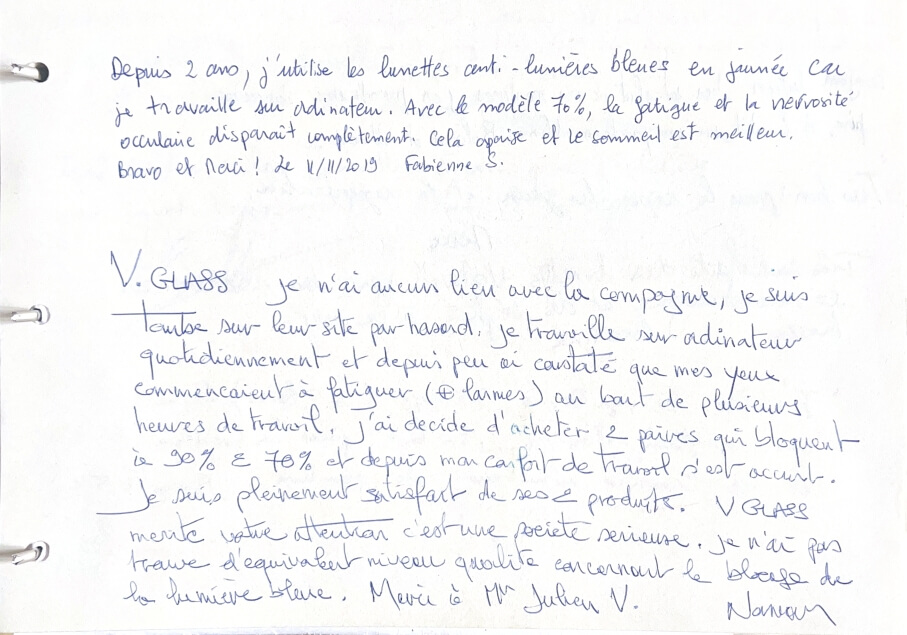 Depuis 2 ans, j'utilise les lunettes anti-lumières bleues en journée car
je travaille sur ordinateur. Avec le modèle 70%, la fatigue et la nervosité
occulaire disparaît complètement. Cela apaise et le sommeil est meilleur.
Bravo et Merci ! Le 11/11/2019 Fabienne S.
V. GLASS je n'ai aucun lien avec la compagnie, je suis
tombé sur leur site par hasard. je travaille sur ordinateur
quotidiennement et depuis peu ai constaté que mes yeux
commencaient à fatiguer (⊕ larmes) au bout de plusieurs
heures de travail. j'ai decide d'acheter 2 paires qui bloquent
à 90% & 70% et depuis mon confort de travail s'est accurt.
Je suis pleinement satisfait de ses 2 produits. V GLASS
merite votre attention c'est une société serieuse. je n'ai pas
trouve d'equivalent niveau qualité concernant le blocage de
la lumière bleue. Merci à Mr Julien V.